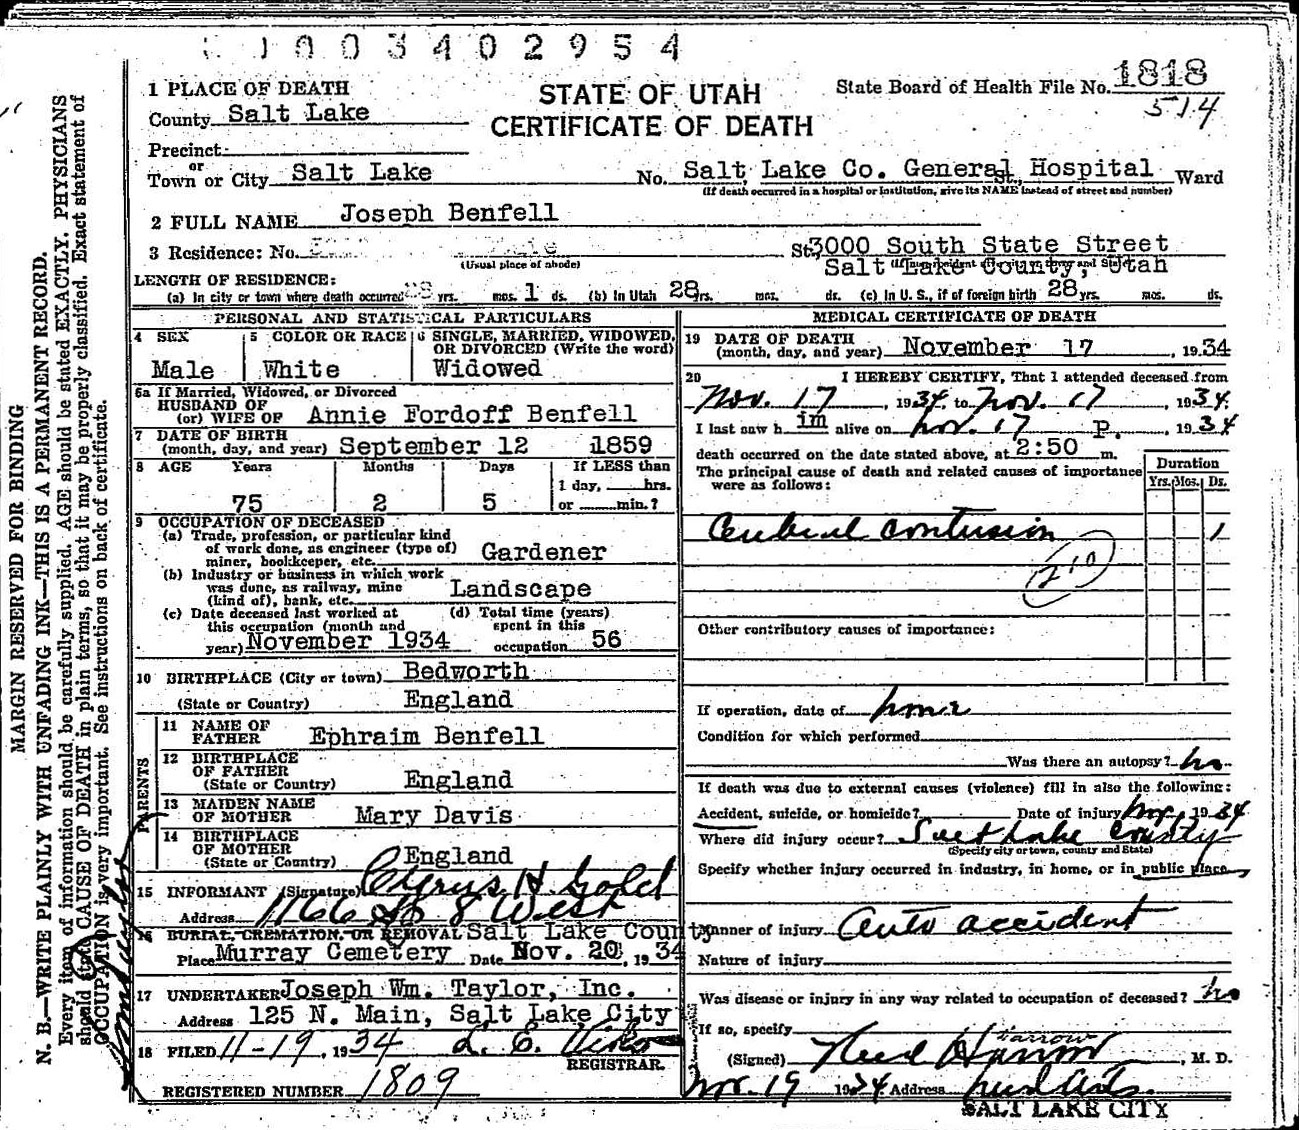 0003402954
1 PLACE OF DEATH
STATE OF UTAH
CERTIFICATE OF DEATH
State Board of Health File No. 1818
514
County Salt Lake
Precinct
or
Town or City Salt Lake No. Salt Lake Co. General Hospital St., Ward
(If death occurred in a hospital or institution, give its NAME instead of street and number)
2 FULL NAME Joseph Benfell
3 Residence: No. St. 3000 South State Street
(Usual place of abode)
Salt Lake County, Utah
LENGTH OF RESIDENCE:
(a) In city or town where death occurred 28 yrs. mos. 1 ds. (b) In Utah 28 yrs. mos. ds. (c) In U. S., if of foreign birth 28 yrs. mos. ds.
PERSONAL AND STATISTICAL PARTICULARS
4 SEX
Male
5 COLOR OR RACE
White
6 SINGLE, MARRIED, WIDOWED, OR DIVORCED (Write the word)
Widowed
6a If Married, Widowed, or Divorced
HUSBAND OF
(or) WIFE OF Annie Fordoff Benfell
7 DATE OF BIRTH
(month, day, and year) September 12 1859
8 AGE Years Months Days If LESS than
1 day, hrs.
75 2 5 or min.?
9 OCCUPATION OF DECEASED
(a) Trade, profession, or particular kind
of work done, as engineer (type of)
miner, bookkeeper, etc. Gardener
(b) Industry or business in which work
was done, as railway, mine
(kind of), bank, etc. Landscape
(c) Date deceased last worked at
this occupation (month and
year) November 1934
(d) Total time (years)
spent in this
occupation 56
10 BIRTHPLACE (City or town) Bedworth
(State or Country) England
PARENTS
11 NAME OF
FATHER Ephraim Benfell
12 BIRTHPLACE
OF FATHER
(State or Country) England
13 MAIDEN NAME
OF MOTHER Mary Davis
14 BIRTHPLACE
OF MOTHER
(State or Country) England
15 INFORMANT (Signature) Cyrus H Gold
Address 1166 So 8 West
16 BURIAL, CREMATION, OR REMOVAL Salt Lake County
Place Murray Cemetery Date Nov. 20, 1934
17 UNDERTAKER Joseph Wm. Taylor, Inc.
Address 125 N. Main, Salt Lake City
18 FILED 11-19, 1934 L. E.
REGISTRAR.
REGISTERED NUMBER 1809
MEDICAL CERTIFICATE OF DEATH
19 DATE OF DEATH
(month, day, and year) November 17, 1934
20 I HEREBY CERTIFY, That I attended deceased from
Nov. 17, 1934, to Nov. 17, 1934.
I last saw him alive on Nov. 17, 1934
death occurred on the date stated above, at 2:50 P. m.
The principal cause of death and related causes of importance
were as follows:
Duration
Yrs. Mos. Ds.
Cerebral contusion 1
210
Other contributory causes of importance:
If operation, date of none
Condition for which performed
Was there an autopsy? no
If death was due to external causes (violence) fill in also the following:
Accident, suicide, or homicide? Date of injury Nov. 1934
Where did injury occur? Salt Lake County
(Specify city or town, county and State)
Specify whether injury occurred in industry, in home, or in public place
Manner of injury Auto accident
Nature of injury
Was disease or injury in any way related to occupation of deceased? no
If so, specify
(Signed) , M. D.
Nov. 19 1934 Address
SALT LAKE CITY
MARGIN RESERVED FOR BINDING
N. B.—WRITE PLAINLY WITH UNFADING INK—THIS IS A PERMANENT RECORD.
Every item of information should be carefully supplied. AGE should be stated EXACTLY. PHYSICIANS
should state CAUSE OF DEATH in plain terms, so that it may be properly classified. Exact statement of
OCCUPATION is very important. See instructions on back of certificate.